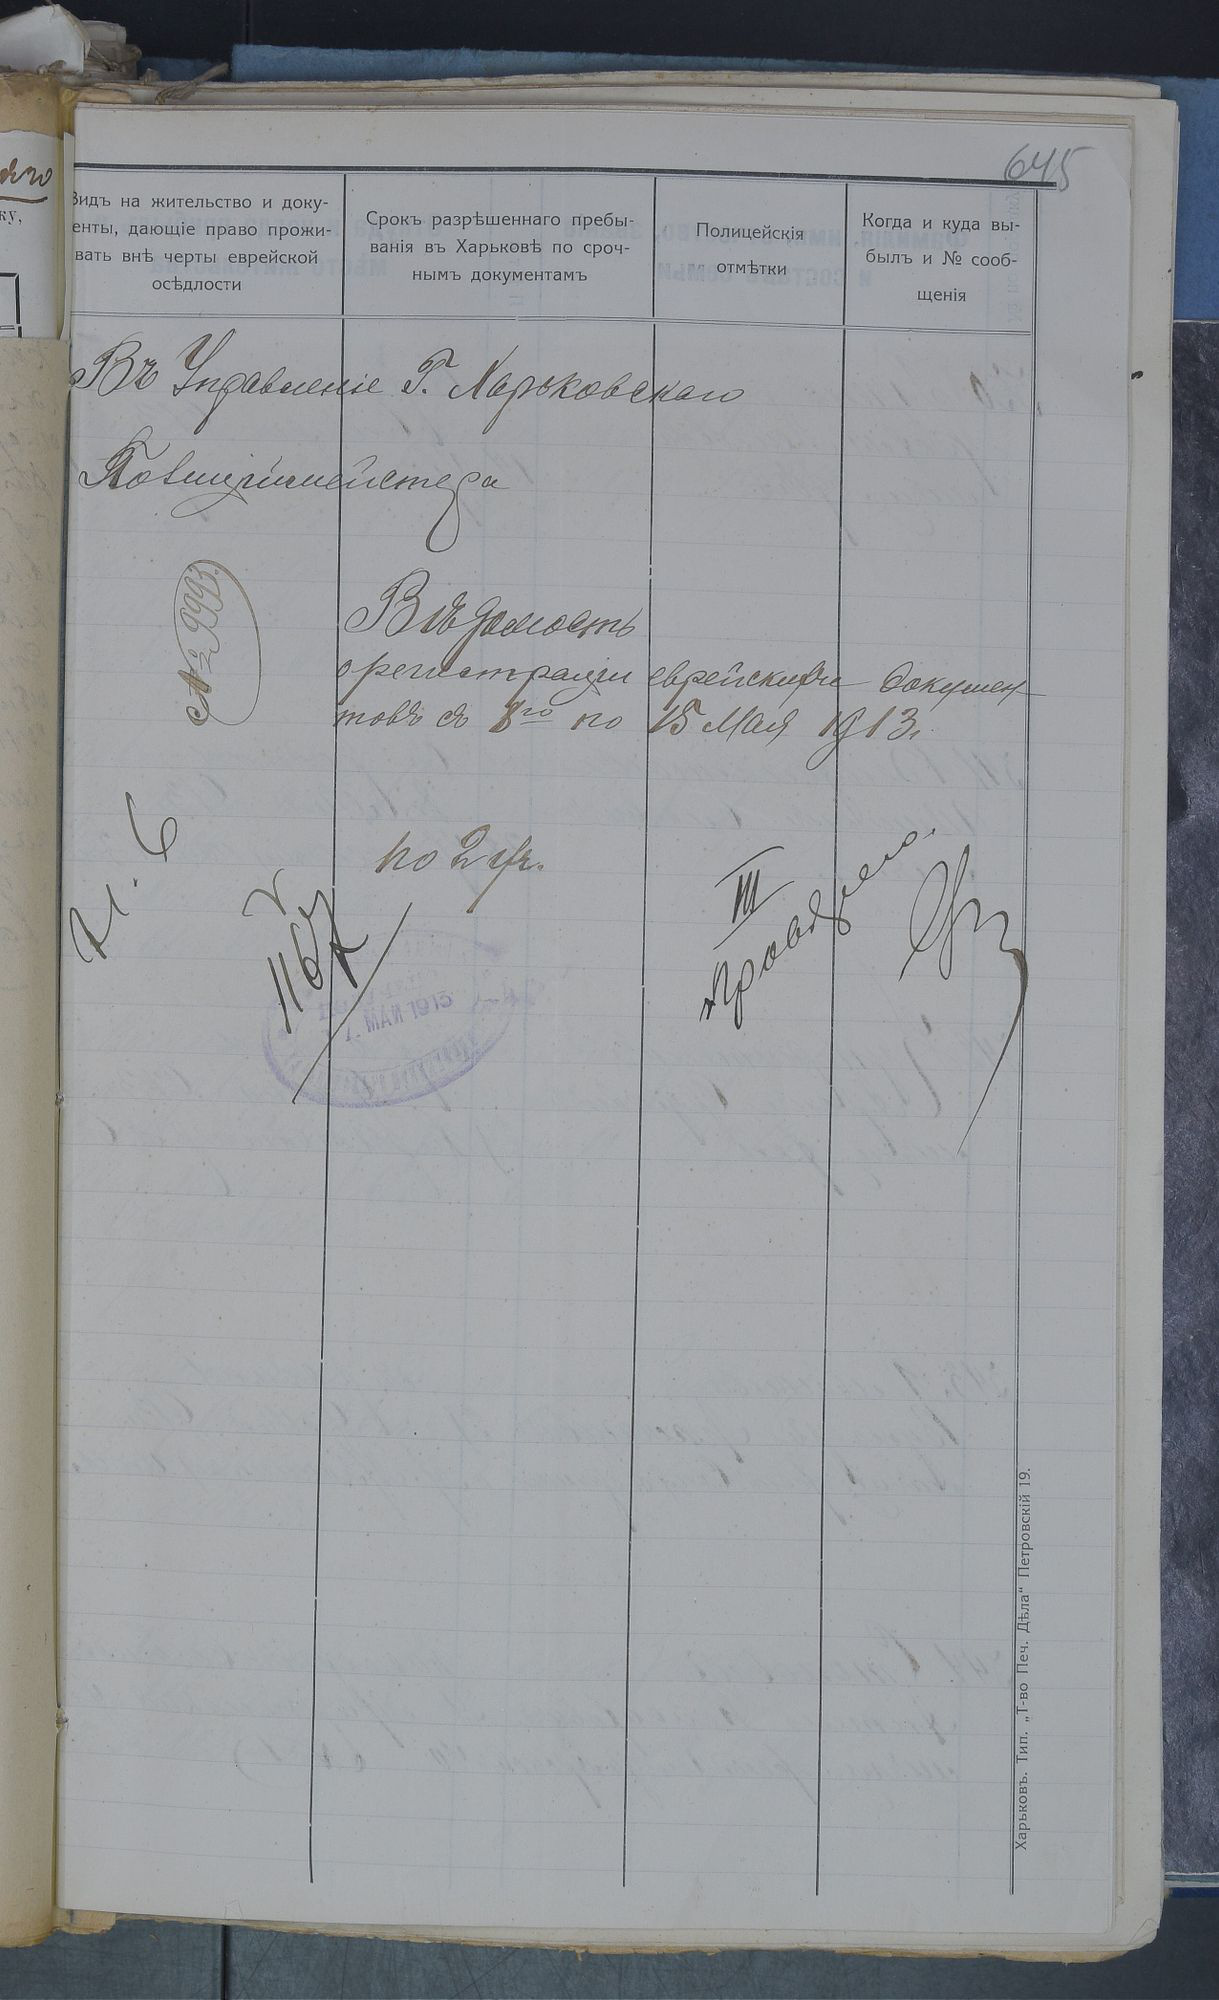 645
Видъ на жительство и доку-
енты, дающіе право прожи-
вать внѣ черты еврейской
осѣдлости
Срокъ разрѣшеннаго пребы-
ванія въ Харьковѣ по сроч-
нымъ документамъ
Полицейскія
отмѣтки
Когда и куда вы-
былъ и № сооб-
щенія
Въ Управленіе Г. Харьковскаго
Полицiймейстера
№ 9993.
Вѣдомость
о регистраціи еврейскихъ докумен
товъ съ 8го по 15 Мая 1913 г.
по 2 уч.
1167
III
МАЯ 1913
Харьковъ. Тип. „Т-во Печ. Дѣла“ Петровскій 19.